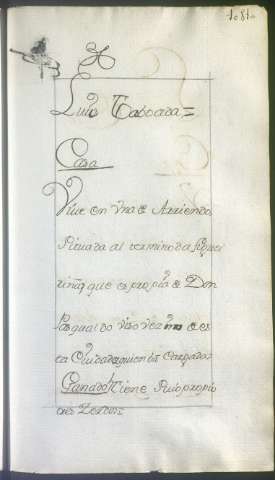 1081
Luis Taboada =
Casa
Vive en Vna de Arriendo
Situada al termino da figuei
riña, que es propia de Don
Pasqual do Viso Vezino de es
ta Ciudad, quien los Cargados
Ganado/ Tiene Suio propio
tres Zerdos